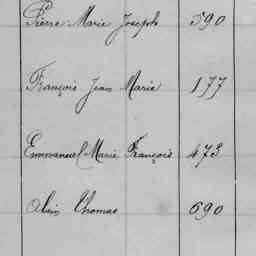 Pierre Marie Joseph 590
François Jean Marie 177
Emmanuel Marie François 473
Alain Thomas 690